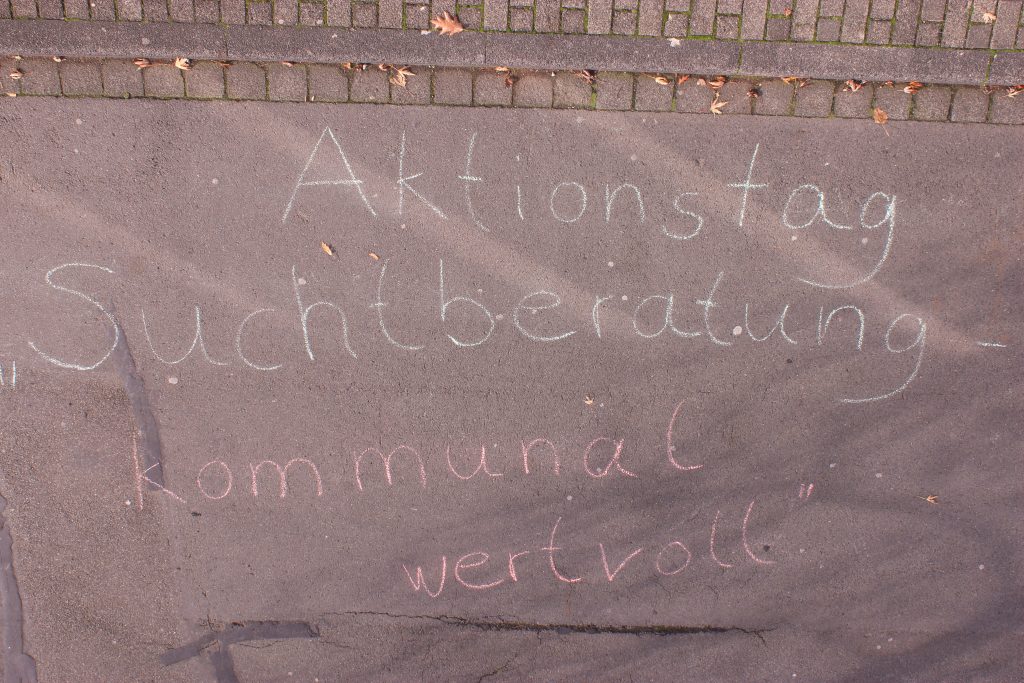 Aktionstag
„Suchtberatung -
kommunal
wertvoll"